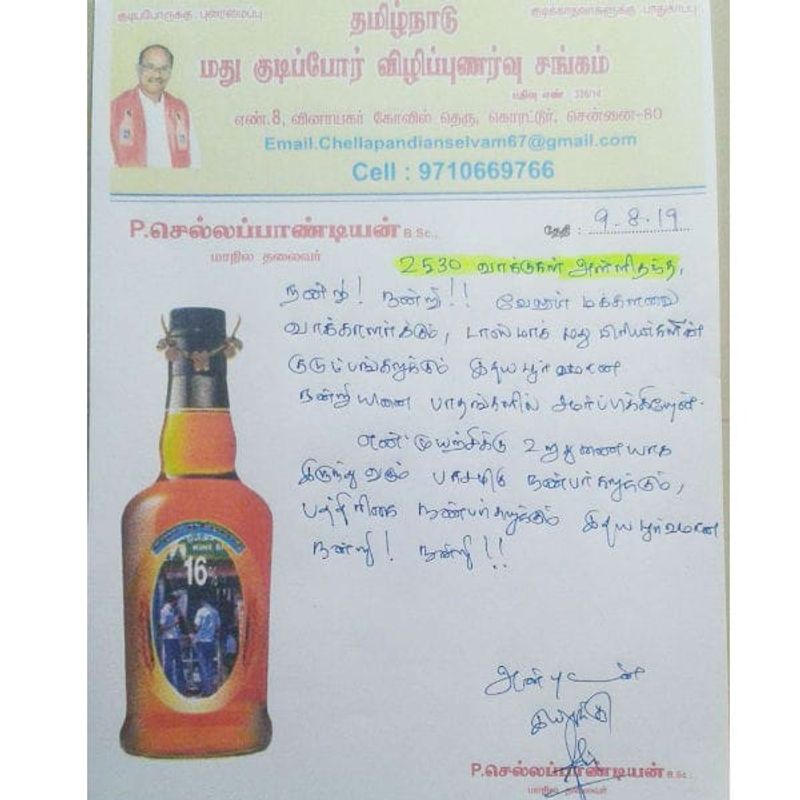 குடிப்போருக்கு புரைமைப்பு
குடிக்காதவர்களுக்கு பாதுகாப்பு
தமிழ்நாடு
மது குடிப்போர் விழிப்புணர்வு சங்கம்
பதிவு எண் : 326/14
எண்.8, விநாயகர் கோவில் தெரு, கொரட்டூர், சென்னை-80
Email.Chellapandianselvam67@gmail.com
Cell : 9710669766
P.செல்லப்பாண்டியன் B.Sc.,
மாநில தலைவர்
தேதி : 9.8.19
2530 வாக்குகள் அள்ளிதந்த,
நன்றி! நன்றி!! வேலூர் மக்களவை
வாக்காளர்க்கும், டாஸ்மாக் மது பிரியர்களின்
குடும்பங்களுக்கும் இதய பூர்வமான
நன்றியினை பாதங்களில் சமர்ப்பிக்கிறேன்.
என் முயற்சிக்கு உறுதுணையாக
இருந்து வரும் பாசமிகு நண்பர்களுக்கும்,
பத்திரிகை நண்பர்களுக்கும் இதய பூர்வமான
நன்றி! நன்றி!!
16%
அன்புடன்
P.செல்லப்பாண்டியன் B.Sc.,
மாநில தலைவர்